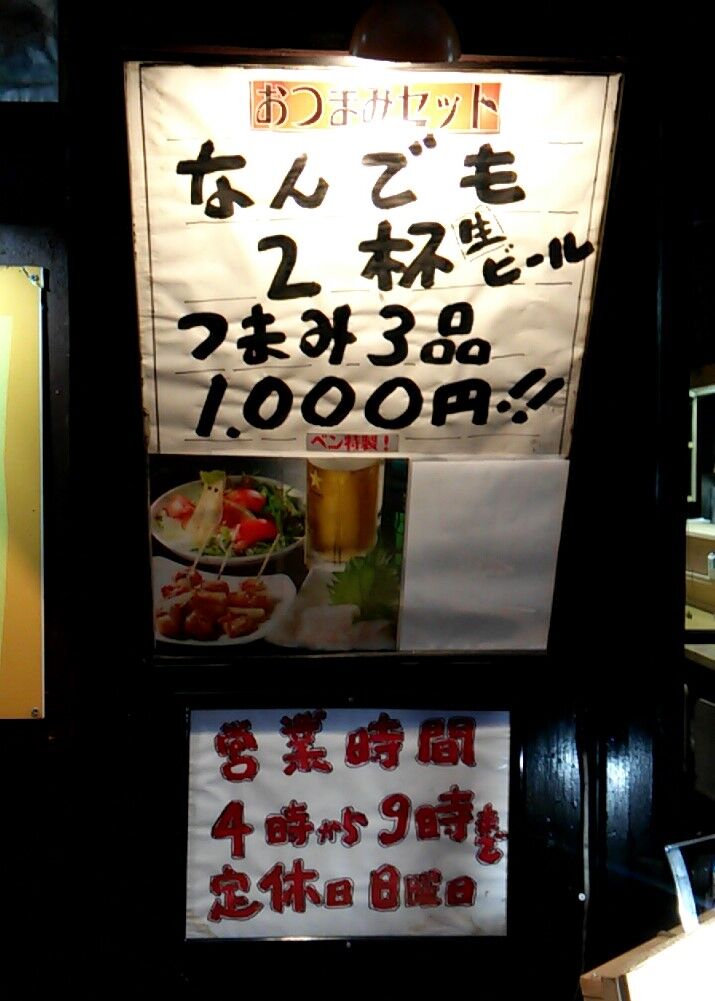 おつまみセット
なんでも
2杯生ビール
つまみ3品
1.000円!!
ベン特製!
営業時間
4時から9時まで
定休日日曜日